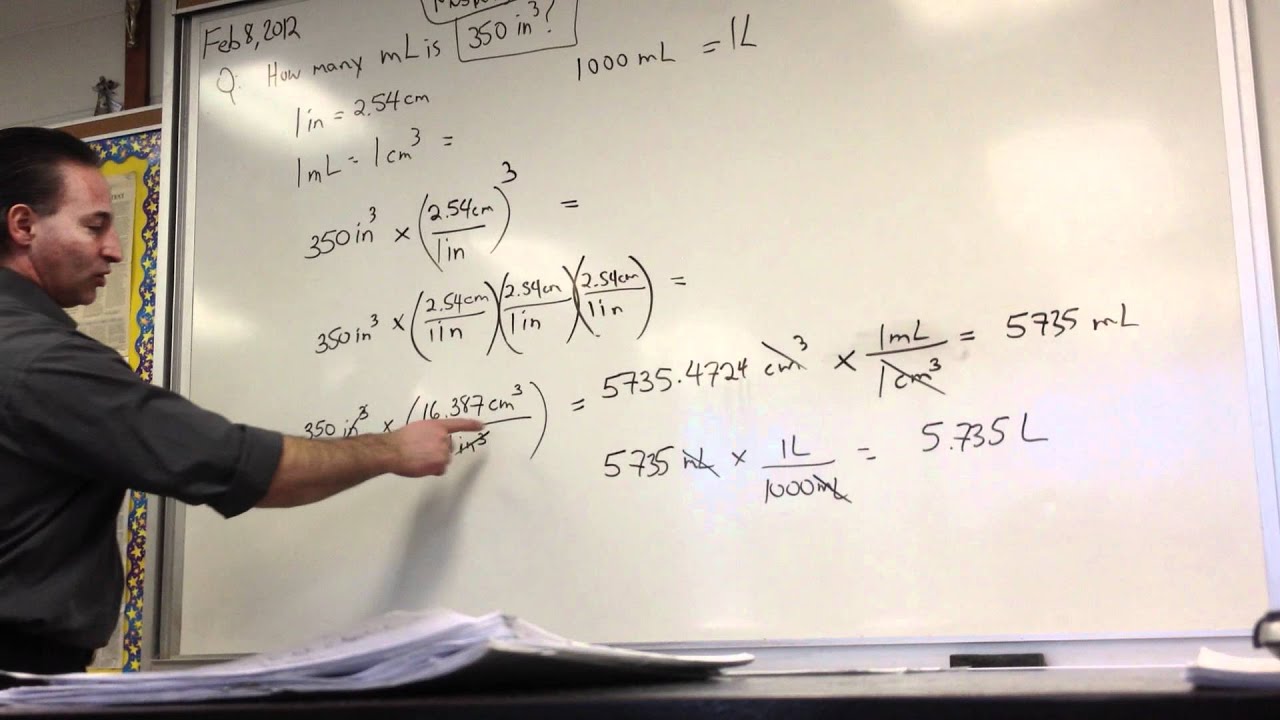 Feb 8, 2012
Q: How many mL is 350 in³?
1000 mL = 1L
1 in = 2.54 cm
1 mL = 1 cm³ =
350 in³ × (2.54cm / 1 in)³ =
350 in³ × (2.54cm / 1 in)(2.54cm / 1 in)(2.54cm / 1 in) =
350 in³ × (16.387 cm³ / in³) = 5735.4724 cm³ × 1mL / 1cm³ = 5735 mL
5735 mL × 1L / 1000mL = 5.735 L